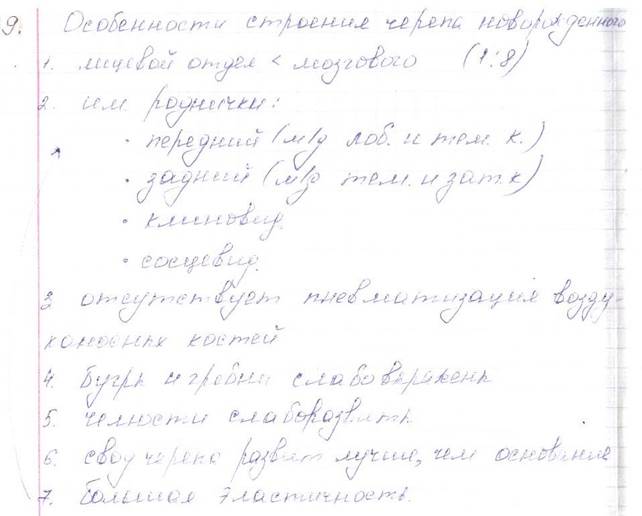 9. Особенности строения черепа новорожденного
1. лицевой отдел < мозгового (1:8)
2. им роднички:
• передний (м/д лоб. и тем. к.)
• задний (м/д тем. и зат. к)
• клиновид.
• сосцевид.
3 отсутствует пневматизация возду-
хоносных костей
4. Бугры и гребни слабовыражены
5. челюсти слаборазвиты
6. свод черепа развит лучше, чем основание
7. Большая эластичность.